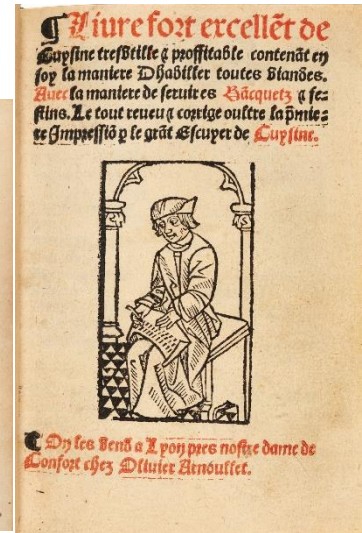 ¶ Liure fort excellẽt de
Cuysine tresvtille ⁊ proffitable contenãt en
soy la maniere Dhabiller toutes viandes.
Auec la maniere de seruir es Bãcquetz ⁊ fe-
stins. Le tout reueu ⁊ corrige oultre la p̃mie-
re Impressiõ p̱ le grãt Escuyer de Cuysine.
¶ On les vend a Lyon pres nostre dame de
Confort chez Oliuier Arnoullet.